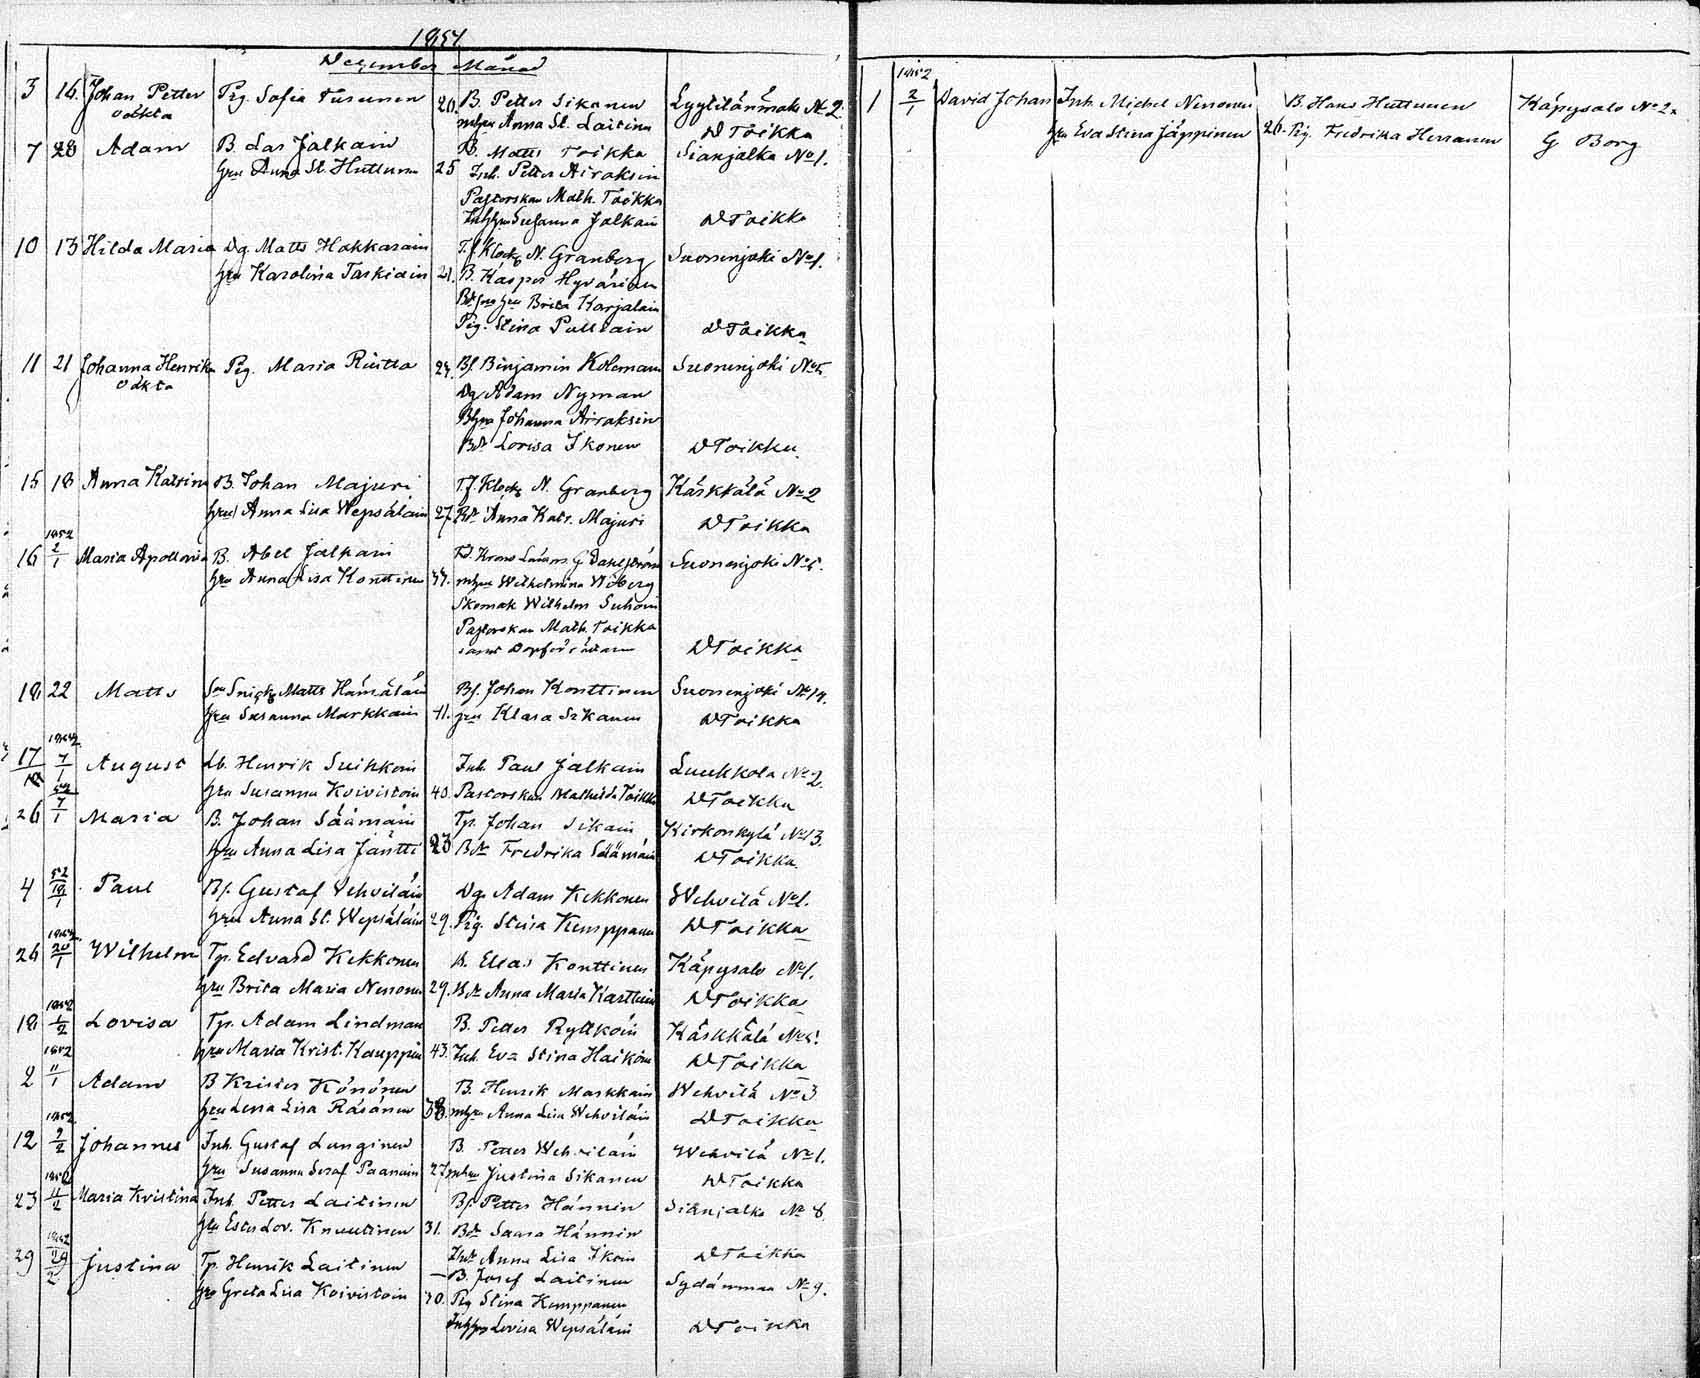 1851
Dezember Månad
3 16. Johan Petter Pig. Sofia Turunen 20. B. Petter Sikanen Lyytilänmäki № 2.
oäkta mhru Anna St. Laitinen D Toikka
7 28 Adam B. Lars Jalkain B. Matts Toikka Sianjalka № 1.
hru Anna St. Huttunen 25 Inh. Petter Airaksin
Pastorskan Math. Toikka
Inhhru Susanna Jalkain D Toikka
10 13 Hilda Maria Dg. Matts Hakkarain T.f. Klock N. Granberg Suonenjoki № 1.
hru Karolina Taskiain 21. B. Kasper Hyvärinen
hru Brita Karjalain
Pig. Stina Pulliain D Toikka
11 21 Johanna Henrika Pig. Maria Riitta 24. Bf. Binjamin Kolemain Suonenjoki № 5.
oäkta Dg Adam Nyman
Bhru Johanna Airaksin
Bdr Lovisa Ikonen D Toikka.
15 18 Anna Katrina B. Johan Majuri T.f. Klock N. Granberg Käskkälä № 2
hru Anna Lisa Wepsäläin 27. Bdr Anna Katr. Majuri D Toikka
1852
16 2/1 Maria Apollonia B. Abel Jalkain G Dahlström Suonenjoki № 5.
hru Anna Lisa Konttinen 44. mhru Wilhelmina Wiberg
Skomak Wilhelm Suhoin
Pastorskan Math. Toikka
D Toikka
18 22 Matts Sn Snick Matts Hämäläin Bf. Johan Konttinen Suonenjoki № 14.
hru Susanna Markkain 41. hru Klara Sikanen D Toikka
1852
17 7/1 August Lb. Henrik Suihkoin Inh. Paul Jalkain Luukkola № 2.
hru Susanna Koivistoin 40. Pastorskan Mathilda Toikka D Toikka
52
26 7/1 Maria B. Johan Säämäin Tp. Johan Sikain Kirkonkylä № 13.
hru Anna Lisa Jäntti 23 Bdr Fredrika Säämäin D Toikka
52
4 18/1 Paul Bf. Gustaf Wehviläin Dg. Adam Kekkonen Wehvilä № 1.
hru Anna St. Wepsäläin 29. Pig. Stina Kemppanen D Toikka
1852
26 20/1 Wilhelm Tp. Edvard Kekkonen B. Elias Konttinen Käpysalo № 1.
hru Brita Maria Nenonen 29. Bdr Anna Maria Karttuin D Toikka
1852
18 1/2 Lovisa Tp. Adam Lindman B. Petter Rytkoin Käskkälä № 5.
hru Maria Krist. Kauppin 43. Inh Eva Stina Haikoin D Toikka
1852
2 11/1 Adam B Krister Könönen B. Henrik Markkain Wehvilä № 3
hru Lena Lisa Räsänen 38. mhru Anna Lisa Wehviläin D Toikka
1852
12 9/2 Johannes Inh. Gustaf Lunginen B. Petter Wehviläin Wehvilä № 1.
hru Susanna Seraf Paanain 27. mhru Justina Sikanen D Toikka
1852
23 11/2 Maria Kristina Inh. Petter Laitinen Bf. Petter Hännin Sianjalka № 8.
hru Ester Lov. Knuutinen 31. Bdr Saara Hännin
1852
29 29/2 Justina Tp. Henrik Laitinen Inh Anna Lisa Ikoin D Toikka
B. Josef Laitinen Sydänmaa № 9.
hru Greta Lisa Koivistoin 40. Pig Stina Kemppanen
Inhhru Lovisa Wepsäläin D Toikka
1852
1 2/1 David Johan Inh. Michel Nenonen B. Hans Huttunen Käpysalo № 2.
hru Eva Stina Jäppinen 26. Pig. Fredrika Herranen G Borg